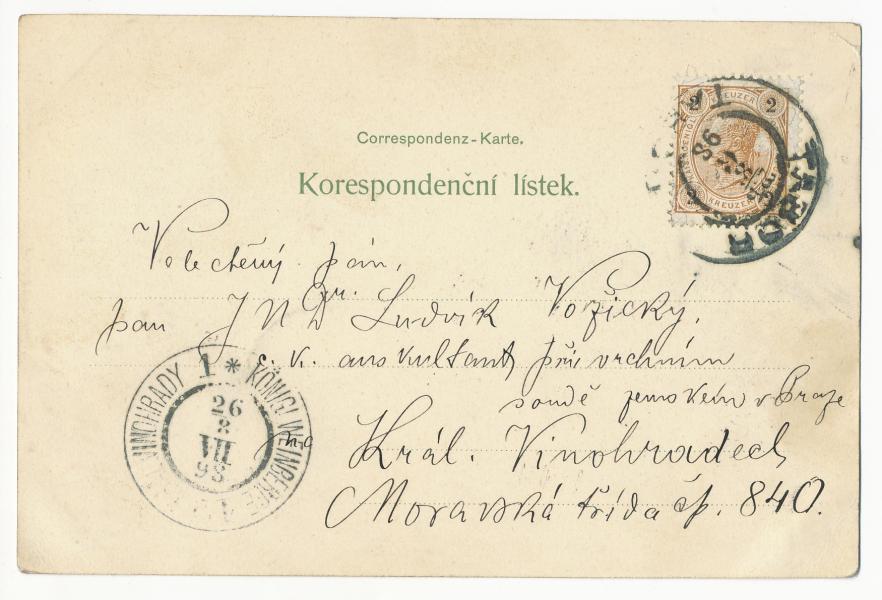 Correspondenz-Karte.
Korespondenční lístek.
2 KREUZER 2
KREUZER
TABOR
98
Velectěný pán,
pan JUDr. Ludvík Vožický,
c. k. auskultant při vrchním
soudě zemském v Praze
na
Král. Vinohradech
Moravská třída čp. 840.
VINOHRADY 1 * KÖNIGL WEINBERGE 1
26
8
VII
98